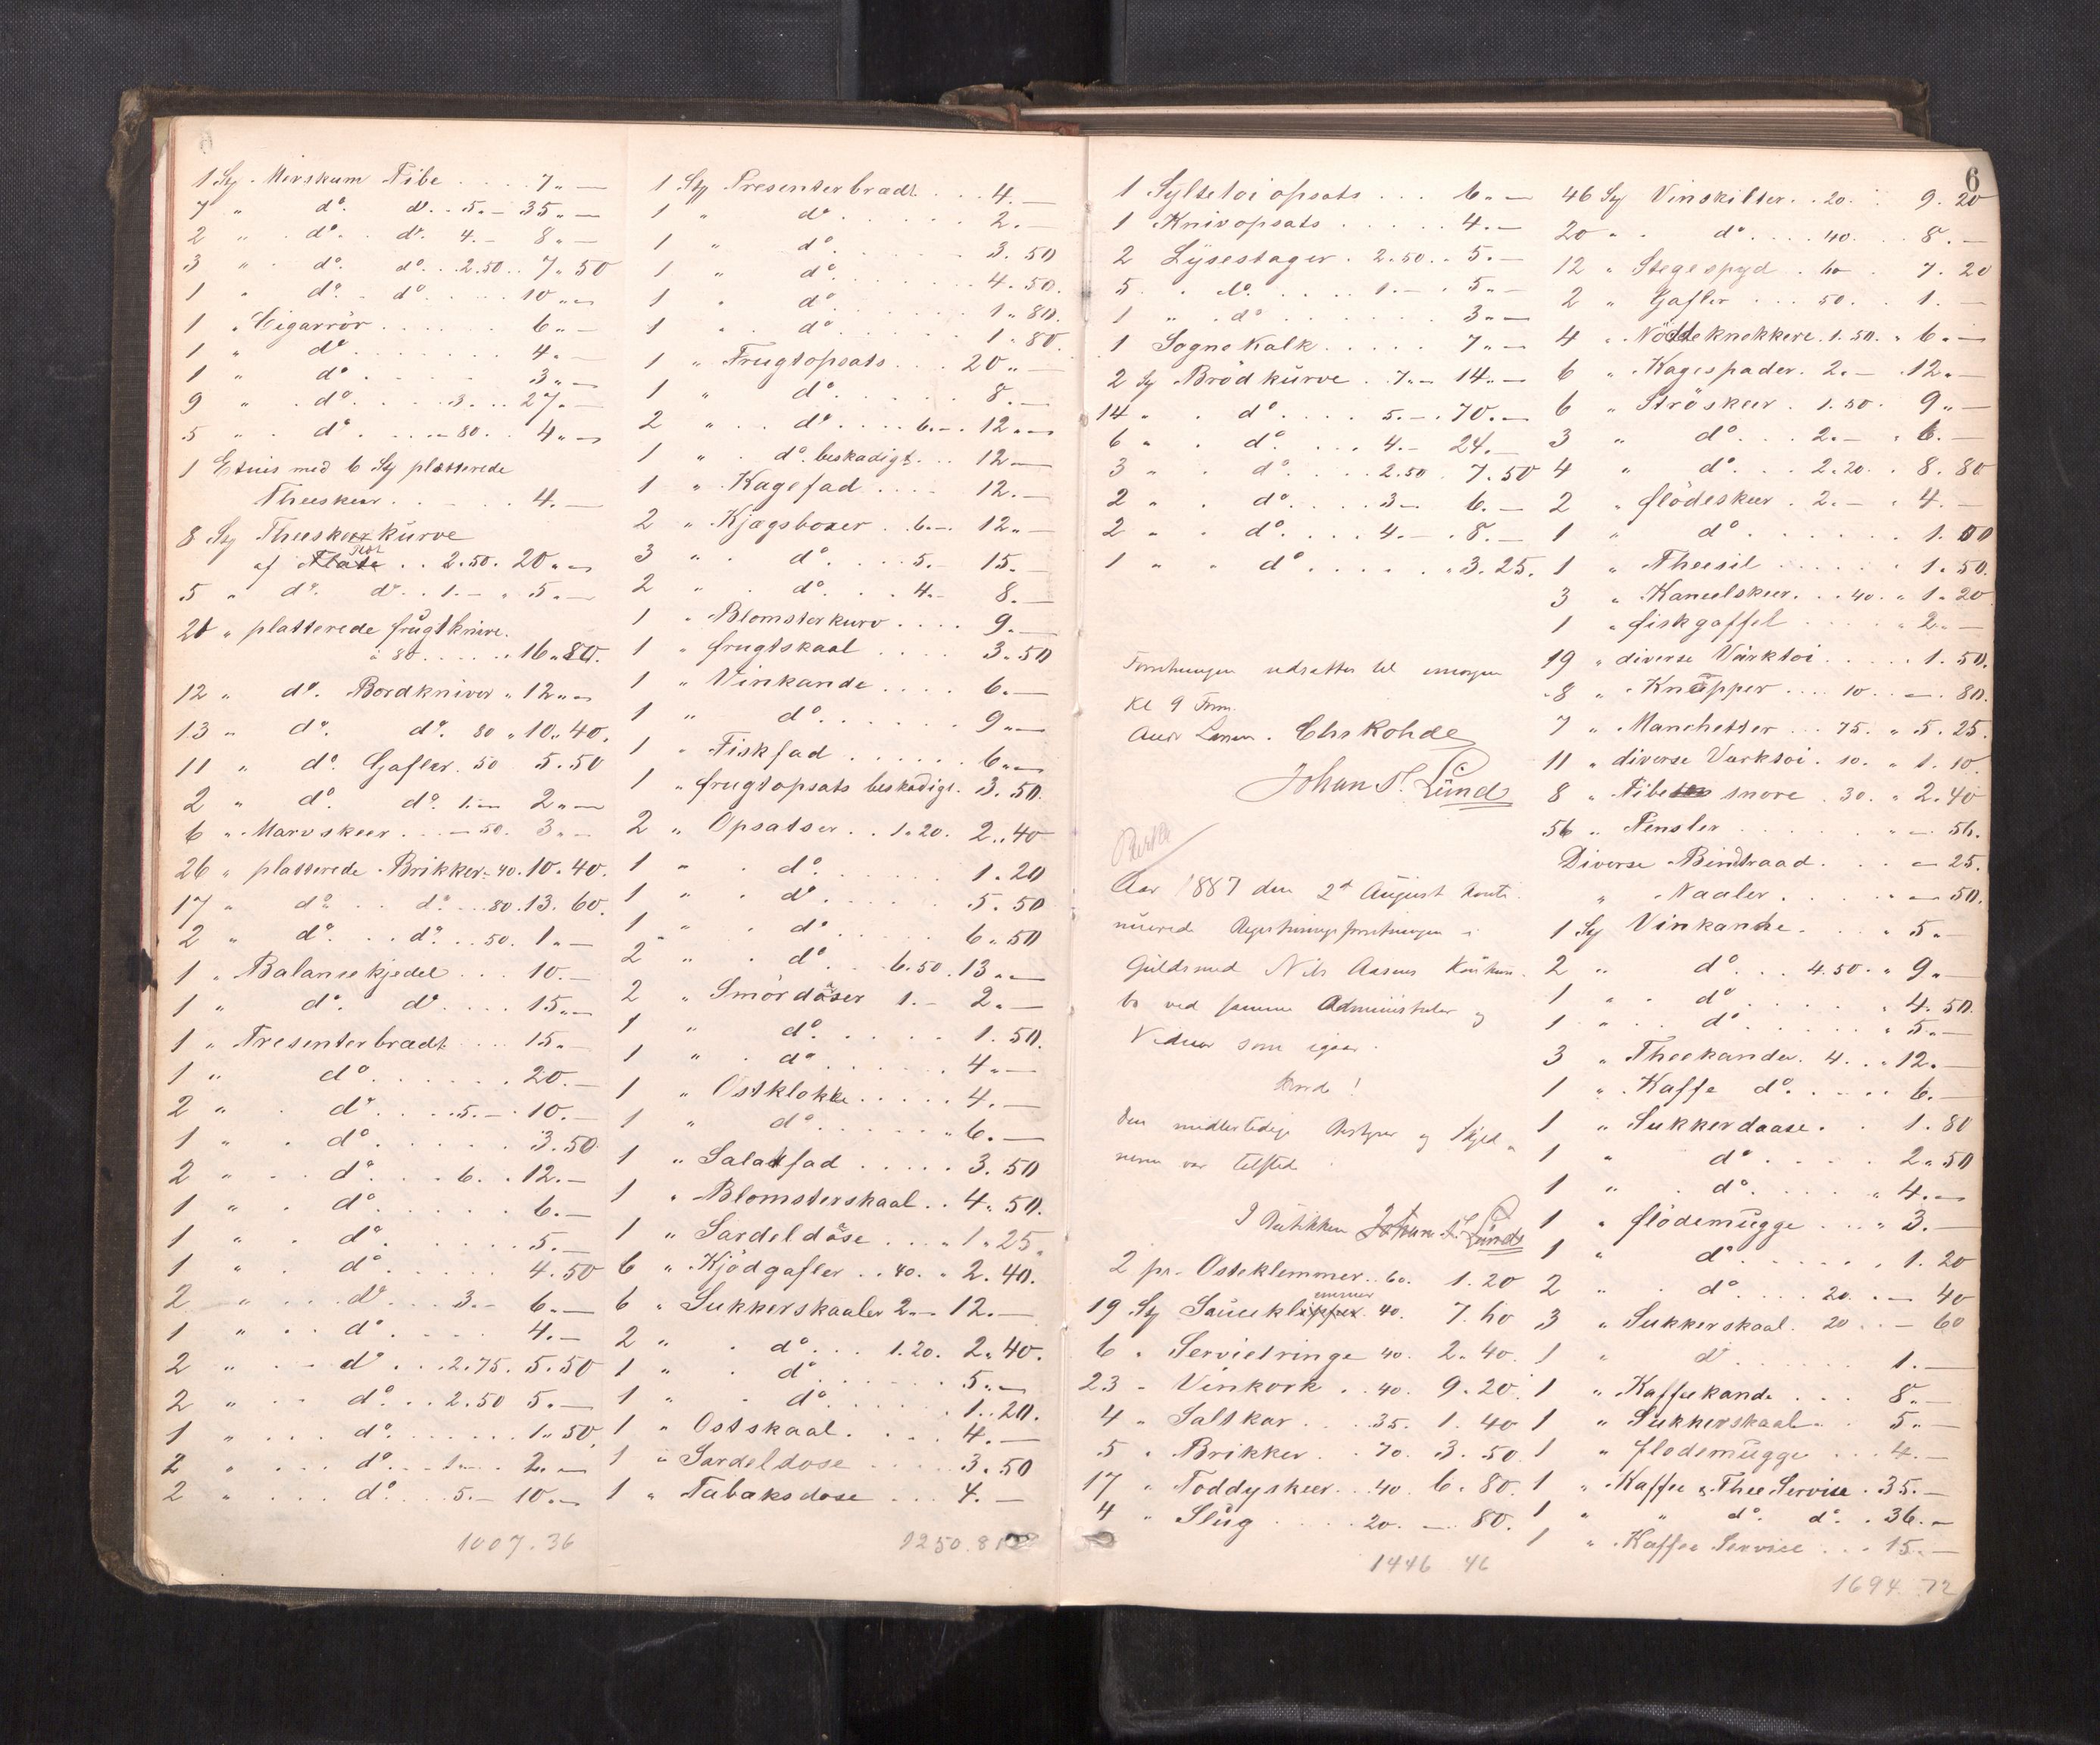 1 Stÿ. Merskum Pibe .... 7.. —
7 " d°. d°. .. 5.— 35.. —
2 " d°. d°. 4.— 8.. —
3 " d°. d°. .. 2.50 .. 7.. 50
1 " d°. d°. .... 10.. —
1 " Cigarrör ..... 6.. —
1 " d° ..... 4.. —
1 " d° ..... 3.. —
9 " d° .... 3. .. 27.. —
5 " d° .... — 80. .. 4.. —
1 Etuis med 6 Stÿ platterede
Theeskeer ..... 4. —
8 Stÿ Theeskeekurve
af .. 2.50. 20.. —
5 " d°. d°. .. 1.— " 5.. —
21 " platterede frugtknive.
à 80 ..... 16.. 80.
12 " d°. Bordkniver " 12.. —
13 " d°. d°. 80 " 10.. 40.
11 " d°. Gafler. 50 5.50
2 " d°. d°. 1.— 2.. —
6 " Marvskeer ... — 50. 3.. —
26 " platterede Brikker. 40. 10. 40.
17 " d°. .. d°. .. 80. 13. 60.
2 " d°. .. d°. .. 50. 1.. —
1 " Balansekjedel ... 10. —
1 " d°. d°. ... 15.. —
1 " Presenterbradt ... 15. —
1 " d° ..... 20. —
2 " d° .... 5.— . 10. —
1 " d° ..... 3. 50.
2 " d° ... 6. . 12. —
1 " d° ..... 6. —
1 " d° ..... 5. —
1 " d° ..... 4. 50
2 " d° ... 3.— 6. —
1 " d° .... 4. —
2 " d° ... 2.75. 5. 50
2 " d° .. 2.50 5. —
1 " d° ..... 1.. 50.
2 " d° .. 1.— . 2. —
2 " d° ... 5.— 10. —
1007.36
1 Stÿ Presenterbradt ... 4. —
1 " d° ..... 2. —
1 " d° ..... 3. 50
1 " d° ..... 4. 50.
1 " d° ..... 1. 80.
1 " d° ..... 1. 80.
1 " Frugtopsats ... 20.. —
1 " d° ..... 8. —
2 " d° .... 6.—. 12.. —
1 " d° beskadigt ... 12 —
1 " Kagefad .... 12. —
2 " Kjægsboxer . 6.— . 12.. —
3 " d° .... 5.— 15. —
2 " d° ... 4.— 8. —
1 " Blomsterkurv .... 9. —
1 " frugtskaal .... 3. 50
1 " Vinkande .... 6. —
1 " d° ..... 9.. —
1 " Fiskfad ..... 6.. —
1 " frugtopsats beskadigt. 3. 50.
2 " Opsatser .. 1.20. 2.. 40
1 " d° ..... 1. 20
1 " d° ..... 5. 50
1 " d° ..... 6. 50
2 " d° .. 6.50. 13.. —
2 " Smördåser 1.— 2. —
1 " d° ..... 1. 50.
1 " d° ..... 4.. —
1 " Ostklokke ..... 4. —
1 " d° ..... 6. —
1 " Salatfad ..... 3. 50
1 " Blomsterskaal .. 4. 50.
1 " Sardeldåse .... 1. 25.
6 " Kjödgafler .. 40. " 2. 40.
6 " Sukkerskaaler 2.— 12. —
2 " d° ... 1.20. 2. 40.
1 " d° ..... 5.. —
1 " d° ..... 1. 20.
1 " Ostskaal .... 4. —
1 " Sardeldose .... 3. 50
1 " Tabaksdose ... 4. —
1250.81
6
1 Syltetöiopsats ... 6.. —
1 Knivopsats ..... 4. —
2 Lÿsestager . 2.50. . 5. —
5 " d° .... 1.— . 5.. —
1 " d° ..... 3.. —
1 Sognekalk ..... 7.. —
2 Stÿ Brödkurve . 7.— 14.. —
14 " d° .... 5.—. 70. —
6 " d° ... 4.— 24. —
3 " d° .... 2.50 . 7. 50
2 " d° .... 3— 6. —
2 " d° .... 4.— . 8. —
1 " d° ..... 3. 25.
Forretningen udsættes til imorgen
Kl 9 Form.
Chs Rohde
Johan S. Lund
Aar 1887 den 2d August konti
nuerede Registreringsforretningen i
Guldsmed Nils Aasens Konkurs
bo ved samme Administrator og
Vidner som igaar.
Den midlertidige Bestyrer og Skyld
neren var tilsted
I Butikken Johan S. Lund
2 pr. Osteklemmer .. 60. 1. 20
19 Stÿ Saucekl emmer 40. 7. 60
6 " Servietringe 40. 2. 40.
23 " Vinkork .. 40. 9. 20.
4 " Saltkar ... 35. 1. 40
5 " Brikker .. 70. 3. 50
17 " Toddyskeer .. 40 6. 80.
4 " Slug .... 20. — 80.
1446 46
46 Stÿ Vinskilter .. 20. . 9. 20
20 " d° .... 40. .. 8. —
12 " Stegespyd . 60 . 7. 20
2 " Gafler ... 50. . 1. —
4 " Nöddeknekkere 1.50. " 6. —
6 " Kagespader. 2.— . 12. —
6 " Ströskeer . 1.50. 9.. —
3 " d° ... 2.— . 6. —
4 " d° ... 2.20. . 8. 80
2 " flödeskeer . 2.— . 4. —
1 " d° ..... 1. 00
1 " Theesil ..... 1. 50.
3 " Kaneelskeer. .. 40. " 1. 20
1 " fiskgaffel .... " 2. —
19 " diverse Värktöi ..... 1. 50.
8 " Knapper ... 10 .. —. 80.
7 " Manchetter ... 75. " 5. 25.
11 " diverse Varktöi . 10. " 1. 10.
8 " Pibe snore . 30. " 2. 40
56 " Pensler ..... " — 56.
Diverse Bindtraad ... — 25.
" Naaler .... — 50.
1 Stÿ Vinkande ... " 5. —
2 " d° ... 4.50. " 9. —
1 " d° ..... " 4. 50.
1 " d° ..... " 5. —
3 " Theekander. 4. .. 12. —
1 " Kaffe d° ..... 6. —
1 " Sukkerdaase. . 1. 80
1 " d° .... 2. 50
1 " d° .... " 4. —
1 " flödemugge ... " 3. —
1 " d° ..... 1. 20
2 " d° ... 20. .. — 40
3 " Sukkerskaal. 20 .. — 60
1 " d° ..... 1. —
1 " Kaffeekande ... 8. —
1 " Sukkerskaal .. 5.. —
1 " flodemugge ... 4. —
1 " Kaffee & Thee Servise . 35. —
1 " " d°. d°. . 36. —
1 " Kaffee Servise ... 15. —
1694.72